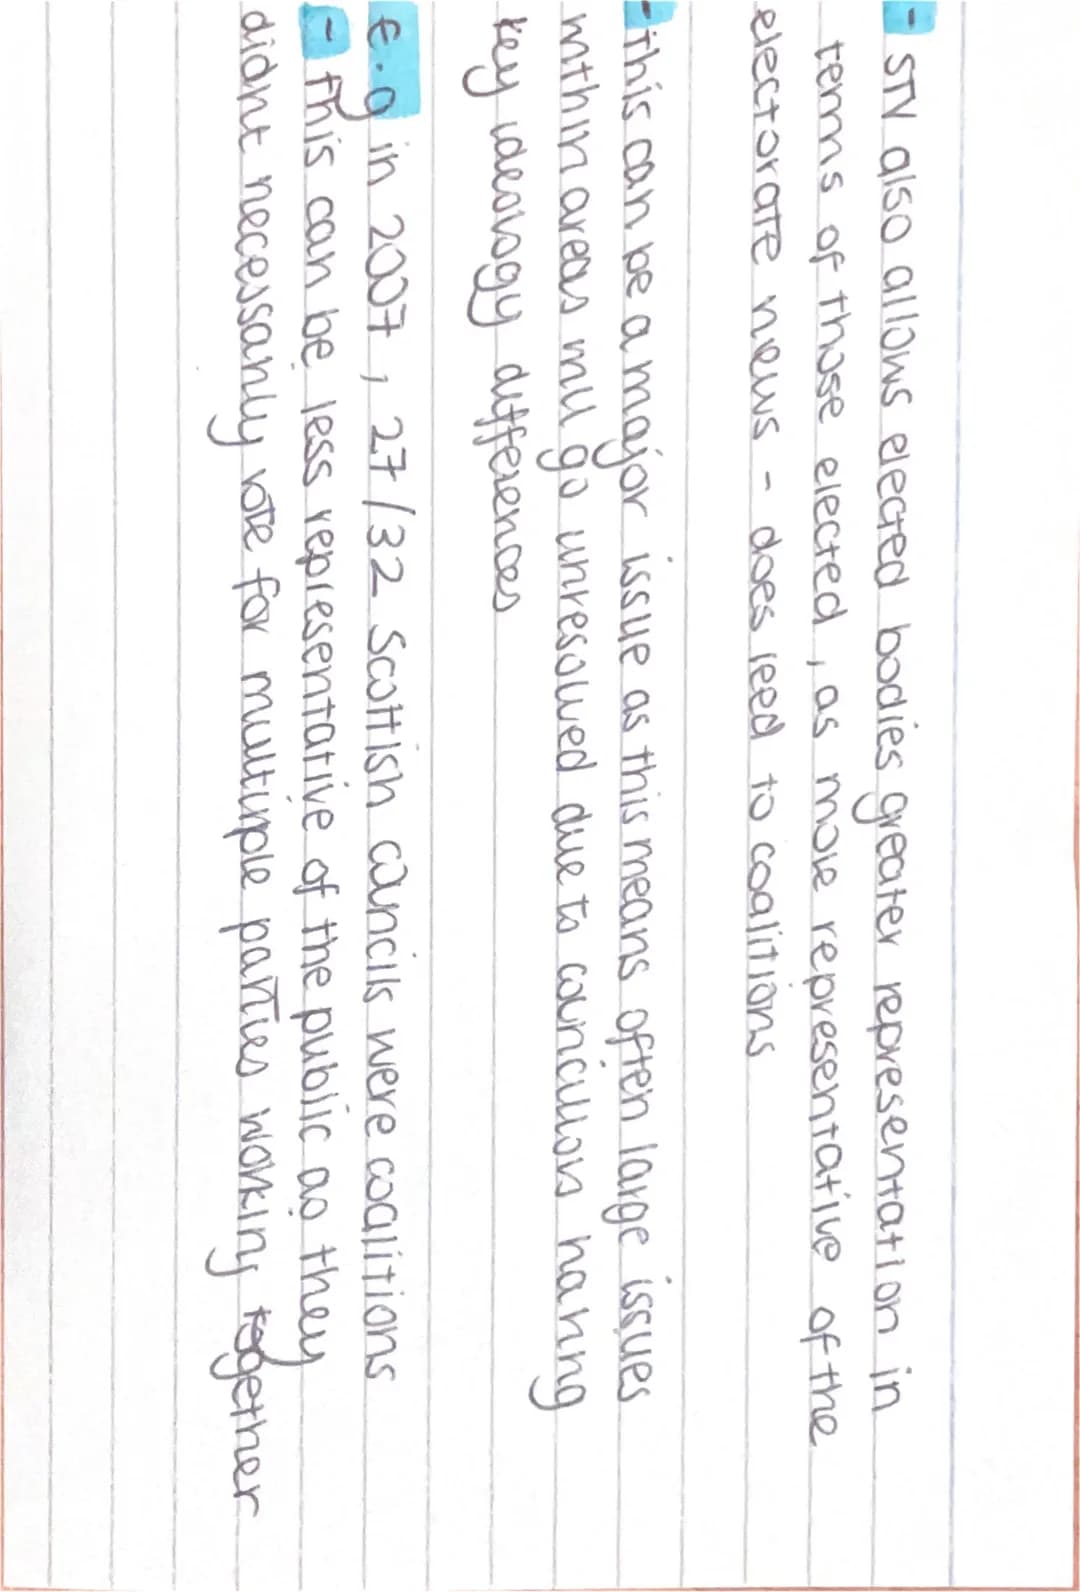 - STV also allows elected bodies greater representation in
terms of those elected, as more representative of the
electorate views - does leed to coalitions
- This can be a major issue as this means often large issues
within areas will go unresolved due to councillors having
key ideology differences
E.g in 2007, 27/32 Scottish councils were coalitions
- This can be less representative of the public as they
didnt necessarily vote for multiple parties working together